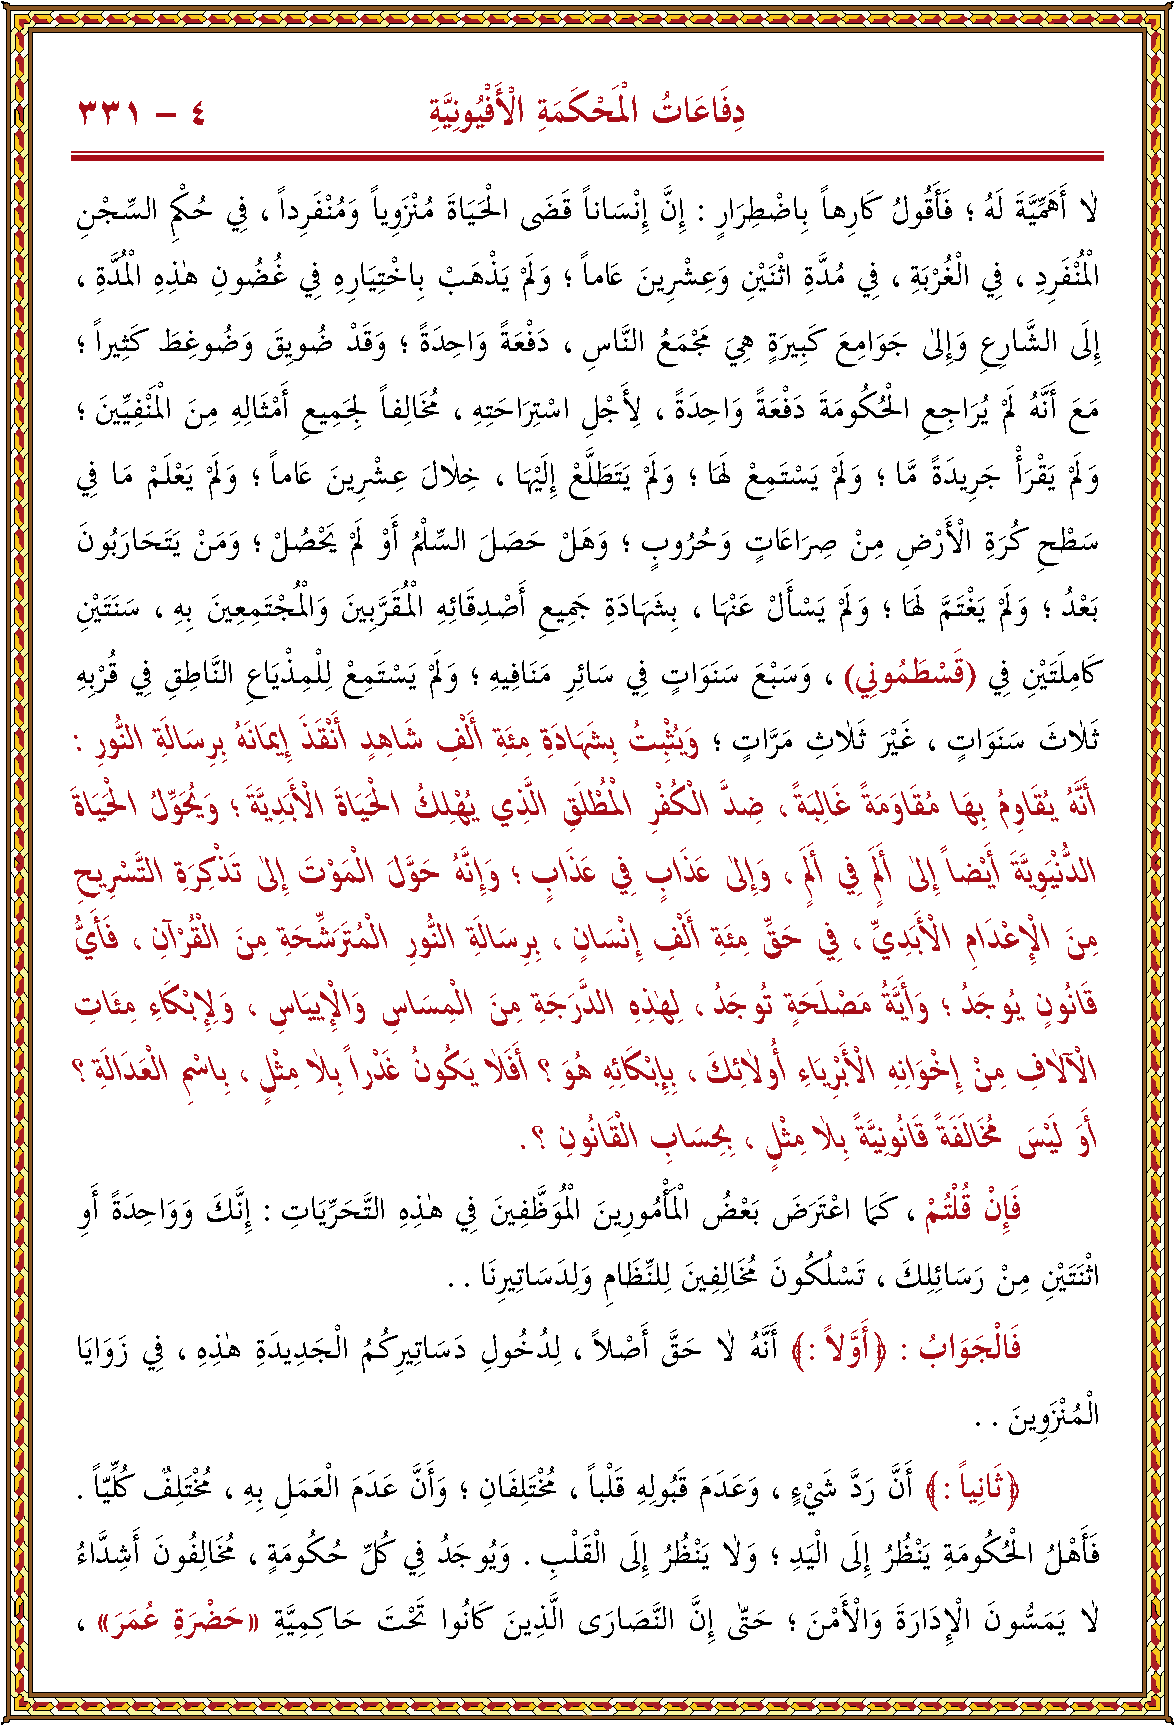 دِفَاعَاتُ الْمَحْكَمَةِ الْأَفْيُونِيَّةِ
٤ – ٣٣١
لاَ أَهَمِّيَّةَ لَهُ ؛ فَأَقُولُ كَارِهاً بِاضْطِرَارٍ : إِنَّ إِنْسَاناً قَضَى الْحَيَاةَ مُنْزَوِياً وَمُنْفَرِداً ، فِي حُكْمِ السِّجْنِ
الْمُنْفَرِدِ ، فِي الْغُرْبَةِ ، فِي مُدَّةِ اثْنَيْنِ وَعِشْرِينَ عَاماً ؛ وَلَمْ يَذْهَبْ بِاخْتِيَارِهِ فِي غُضُونِ هٰذِهِ الْمُدَّةِ ،
إِلَى الشَّارِعِ وَإِلٰى جَوَامِعَ كَبِيرَةٍ هِيَ مَجْمَعُ النَّاسِ ، دَفْعَةً وَاحِدَةً ؛ وَقَدْ ضُويِقَ وَضُوغِطَ كَثِيراً ؛
مَعَ أَنَّهُ لَمْ يُرَاجِعِ الْحُكُومَةَ دَفْعَةً وَاحِدَةً ، لِأَجْلِ اسْتِرَاحَتِهِ ، مُخَالِفاً لِجَمِيعِ أَمْثَالِهِ مِنَ الْمَنْفِيِّينَ ؛
وَلَمْ يَقْرَأْ جَرِيدَةً مَّا ؛ وَلَمْ يَسْتَمِعْ لَهَا ؛ وَلَمْ يَتَطَلَّعْ إِلَيْهَا ، خِلاَلَ عِشْرِينَ عَاماً ؛ وَلَمْ يَعْلَمْ مَا فِي
سَطْحِ كُرَةِ الْأَرْضِ مِنْ صِرَاعَاتٍ وَحُرُوبٍ ؛ وَهَلْ حَصَلَ السِّلْمُ أَوْ لَمْ يَحْصُلْ ؛ وَمَنْ يَتَحَارَبُونَ
بَعْدُ ؛ وَلَمْ يَغْتَمَّ لَهَا ؛ وَلَمْ يَسْأَلْ عَنْهَا ، بِشَهَادَةِ جَمِيعِ أَصْدِقَائِهِ الْمُقَرَّبِينَ وَالْمُجْتَمِعِينَ بِهِ ، سَنَتَيْنِ
كَامِلَتَيْنِ فِي (قَسْطَمُونِي) ، وَسَبْعَ سَنَوَاتٍ فِي سَائِرِ مَنَافِيهِ ؛ وَلَمْ يَسْتَمِعْ لِلْمِذْيَاعِ النَّاطِقِ فِي قُرْبِهِ
ثَلاَثَ سَنَوَاتٍ ، غَيْرَ ثَلاَثِ مَرَّاتٍ ؛ وَيُثْبِتُ بِشَهَادَةِ مِئَةِ أَلْفِ شَاهِدٍ أَنْقَذَ إِيمَانَهُ بِرِسَالَةِ النُّورِ :
أَنَّهُ يُقَاوِمُ بِهَا مُقَاوَمَةً غَالِبَةً ، ضِدَّ الْكُفْرِ الْمُطْلَقِ الَّذِي يُهْلِكُ الْحَيَاةَ الْأَبَدِيَّةَ ؛ وَيُحَوِّلُ الْحَيَاةَ
الدُّنْيَوِيَّةَ أَيْضاً إِلٰى أَلَمٍ فِي أَلَمٍ ، وَإِلٰى عَذَابٍ فِي عَذَابٍ ؛ وَإِنَّهُ حَوَّلَ الْمَوْتَ إِلٰى تَذْكِرَةِ التَّسْرِيحِ
مِنَ الْإِعْدَامِ الْأَبَدِيِّ ، فِي حَقِّ مِئَةِ أَلْفِ إِنْسَانٍ ، بِرِسَالَةِ النُّورِ الْمُتَرَشِّحَةِ مِنَ الْقُرْآنِ ، فَأَيُّ
قَانُونٍ يُوجَدُ ؛ وَأَيَّةُ مَصْلَحَةٍ تُوجَدُ ، لِهٰذِهِ الدَّرَجَةِ مِنَ الْمِسَاسِ وَالْإِيِيَاسِ ، وَلِإِبْكَاءِ مِئَاتِ
الْآلاَفِ مِنْ إِخْوَانِهِ الْأَبْرِيَاءِ أُولاَئِكَ ، بِإِبْكَائِهِ هُوَ ؟ أَفَلاَ يَكُونُ غَدْراً بِلاَ مِثْلٍ ، بِاسْمِ الْعَدَالَةِ ؟
أَوَ لَيْسَ مُخَالَفَةً قَانُونِيَّةً بِلاَ مِثْلٍ ، بِحِسَابِ الْقَانُونِ ؟ .
فَإِنْ قُلْتُمْ ، كَمَا اعْتَرَضَ بَعْضُ الْمَأْمُورِينَ الْمُوَظَّفِينَ فِي هٰذِهِ التَّحَرِّيَاتِ : إِنَّكَ وَوَاحِدَةً أَوِ
اثْنَتَيْنِ مِنْ رَسَائِلِكَ ، تَسْلُكُونَ مُخَالِفِينَ لِلنِّظَامِ وَلِدَسَاتِيرِنَا . .
فَالْجَوَابُ : ﴿أَوَّلاً :﴾ أَنَّهُ لاَ حَقَّ أَصْلاً ، لِدُخُولِ دَسَاتِيرِكُمُ الْجَدِيدَةِ هٰذِهِ ، فِي زَوَايَا
الْمُنْزَوِينَ . .
﴿ثَانِياً :﴾ أَنَّ رَدَّ شَيْءٍ ، وَعَدَمَ قُبُولِهِ قَلْباً ، مُخْتَلِفَانِ ؛ وَأَنَّ عَدَمَ الْعَمَلِ بِهِ ، مُخْتَلِفٌ كُلِّيّاً .
فَأَهْلُ الْحُكُومَةِ يَنْظُرُ إِلَى الْيَدِ ؛ وَلاَ يَنْظُرُ إِلَى الْقَلْبِ . وَيُوجَدُ فِي كُلِّ حُكُومَةٍ ، مُخَالِفُونَ أَشِدَّاءُ
لاَ يَمَسُّونَ الْإِدَارَةَ وَالْأَمْنَ ؛ حَتّٰى إِنَّ النَّصَارَى الَّذِينَ كَانُوا تَحْتَ حَاكِمِيَّةِ «حَضْرَةِ عُمَرَ» ،